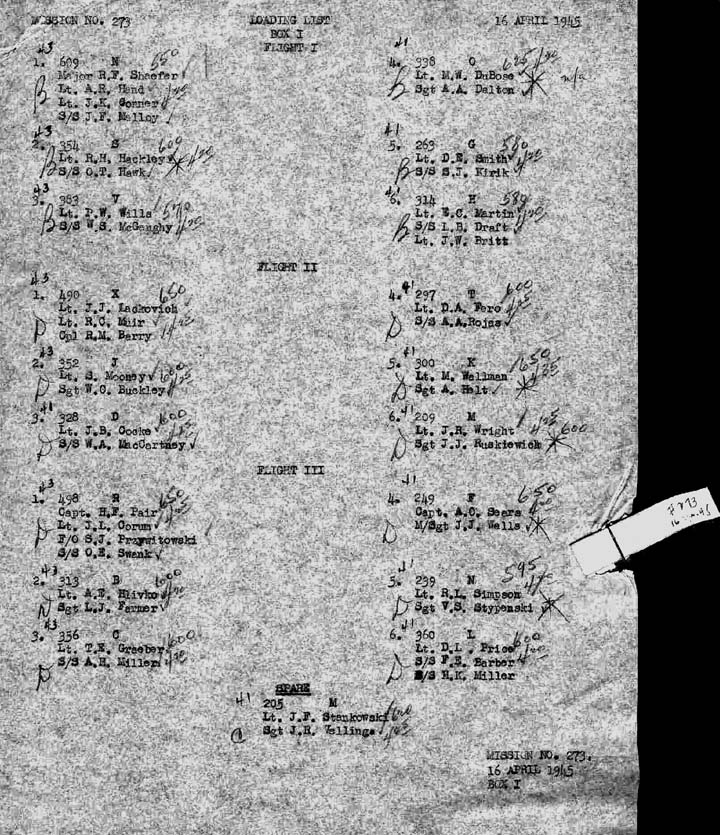 MISSION NO. 273
LOADING LIST
16 APRIL 1945
BOX I
FLIGHT I
43
1. 609 N 550
Major R.F. Shaefer
Lt. A.R. Hand
Lt. J.K. Gorner
S/S J.F. Malloy
41
4. 338 O
Lt. M.W. DuBose
Sgt A.A. Dalton
n/a
B
B
43
2. 354 S 600
Lt. R.H. Hackley
S/S O.T. Hawk
B
41
5. 263 G 580
Lt. D.E. Smith
S/S S.J. Kirik
B
43
3. 383 V 570
Lt. P.W. Wills
S/S W.S. McGaughy
B
41
6. 314 H 580
Lt. E.C. Martin
S/S L.B. Draft
Lt. J.W. Britt
B
FLIGHT II
43
1. 490 X 650
Lt. J.J. Lackovich
Lt. R.C. Muir
Cpl R.M. Berry
D
41
4. 297 T 600
Lt. D.A. Fero
S/S A.A.Rojas
D
43
2. 352 J
Lt. S. Mooney 600
Sgt W.C. Buckley
D
41
5. 300 K 650
Lt. M. Wellman
Sgt A. Helt
D
41
3. 328 D 600
Lt. J.B. Cocke
S/S W.A. MacCartney
D
41
6. 209 M
Lt. J.R. Wright 600
Sgt J.J. Ruskiewich
D
FLIGHT III
43
1. 498 R 650
Capt. H.F. Pair
Lt. J.L. Corum
F/O S.J. Przywitowski
S/S O.E. Swank
D
41
4. 249 F 650
Capt. A.C. Sears
M/Sgt J.J. Wells
D
43
2. 313 B 600
Lt. A.E. Hlivko
Sgt L.J. Farmer
D
41
5. 299 N 595
Lt. R.L. Simpson
Sgt V.S. Stypenski
D
43
3. 356 C
Lt. T.E. Graeber 600
S/S A.H. Miller
D
41
6. 360 L
Lt. D.L. Price 600
S/S F.E. Barber
S/S R.K. Miller
D
SPARE
41
205 M
Lt. J.F. Stankowski 600
Sgt J.R. Vellinga
C
MISSION NO. 273.
16 APRIL 1945
BOX I